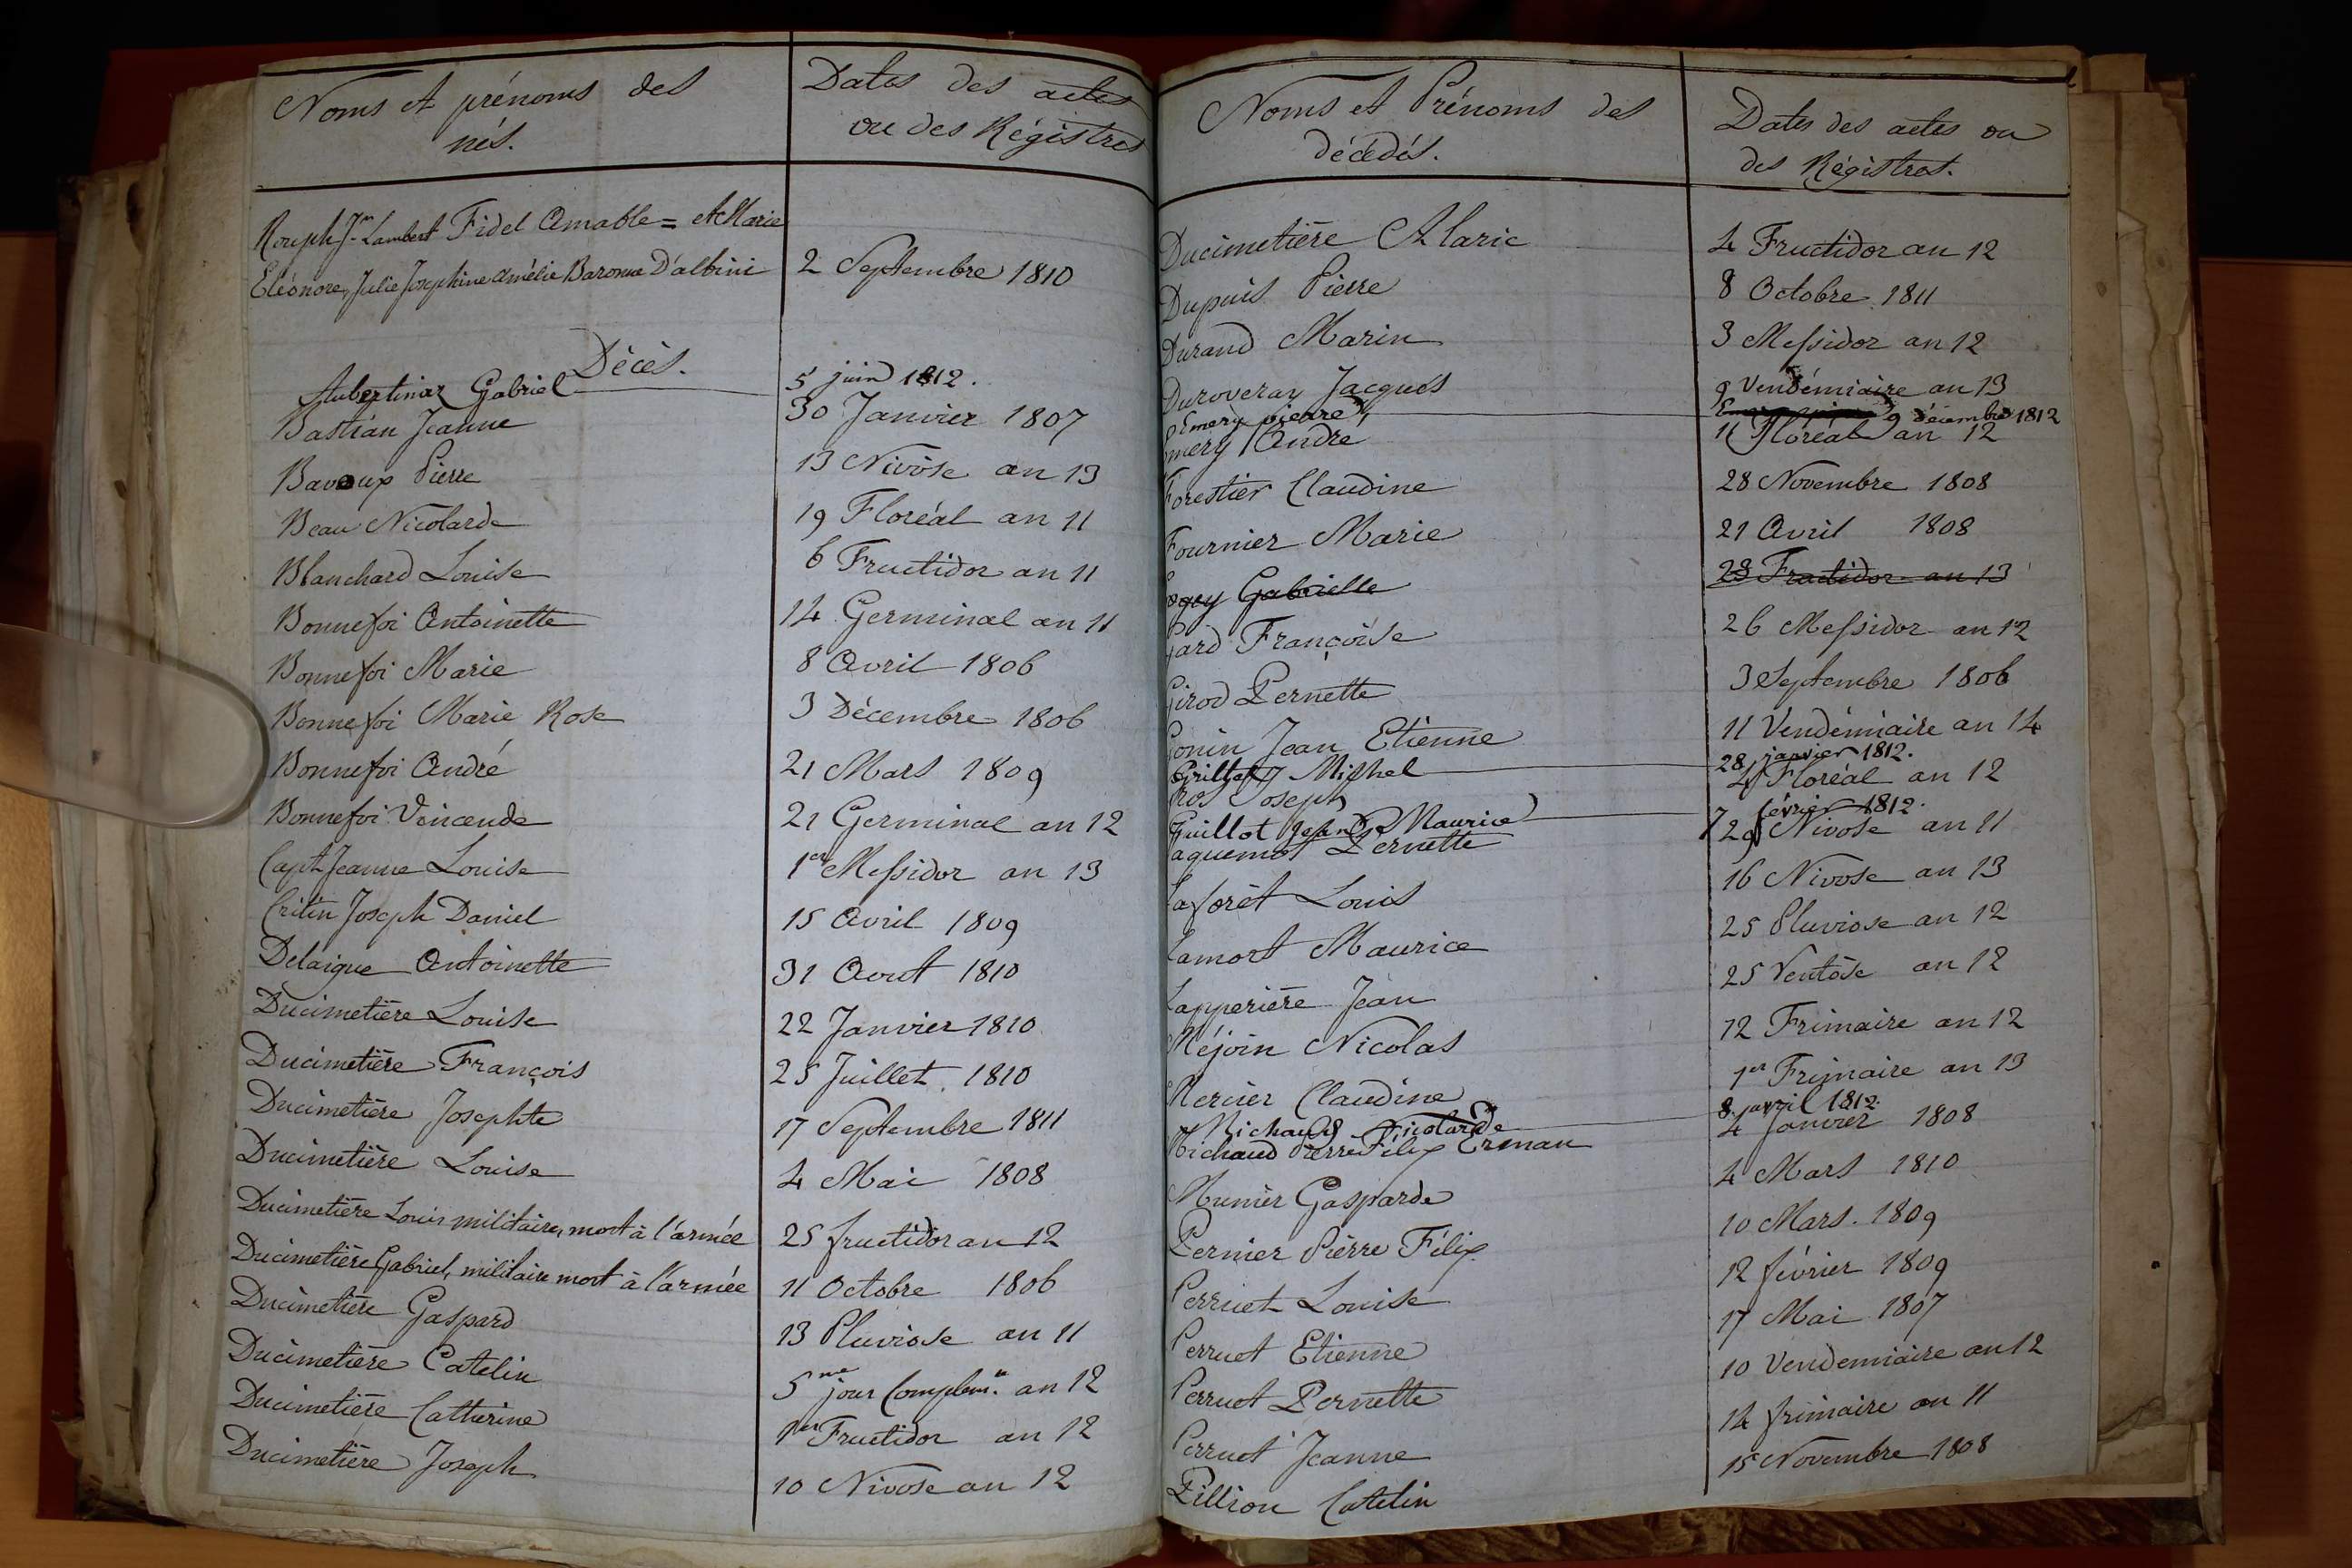 Noms et prénoms des
nés.
Dates des actes
ou des Régistres
Joseph Jn Lambert Fidel Amable = et Marie
Eléonore, Julie Josephine Amélie Baronne D'albini 2 Septembre 1810
Décès.
Aubertinaz Gabriel 5 juin 1812.
Bastian Jeanne 30 Janvier 1807
Bavoux Pierre 13 Nivôse an 13
Beau Nicolarde 19 Floréal an 11
Blanchard Louise 6 Fructidor an 11
Bonnefoi Antoinette 14 Germinal an 11
Bonnefoi Marie 8 Avril 1806
Bonnefoi Marie Rose 3 Décembre 1806
Bonnefoi André 21 Mars 1809
Bonnefoi Vincende 21 Germinal an 12
Capt Jeanne Louise 1er Messidor an 13
Critin Joseph Daniel 15 Avril 1809
Delaigue Antoinette 31 Aout 1810
Ducimetière Louise 22 Janvier 1810
Ducimetière François 25 Juillet 1810
Ducimetière Josephte 17 Septembre 1811
Ducimetière Louise 4 Mai 1808
Ducimetière Louis militaire, mort à l'armée 25 fructidor an 12
Ducimetière Gabriel, militaire mort à l'armée 11 Octobre 1806
Ducimetière Gaspard 13 Pluviose an 11
Ducimetière Catelin 5me jour Complemre an 12
Ducimetière Catherine 1er Fructidor an 12
Ducimetière Joseph 10 Nivose an 12
Noms et Prénoms des
décédés.
Dates des actes ou
des Régistres.
Ducimetière Marie 4 Fructidor an 12
Dupuis Pierre 8 Octobre 1811
Durand Marin 3 Messidor an 12
Duroveray Jacques 9 Vendémiaire an 13
Emery pierre 9 décembre 1812
Emery André 11 Floréal an 12
Forestier Claudine 28 Novembre 1808
Fournier Marie 21 Avril 1808
ogey Gabrielle 23 Fructidor an 13
Gard Françoise 26 Messidor an 12
Girod Pernette 3 Septembre 1806
Gonin Jean Etienne 11 Vendémiaire an 14
Grillet Michel 28 janvier 1812.
Gros Joseph 4 Floréal an 12
Guillot Jean Maurice 7 février 1812.
Jaquemot Pernette 29 Nivose an 11
Laforêt Louis 16 Nivose an 13
Lamort Maurice 25 Pluviose an 12
Lapperière Jean 25 Ventôse an 12
Méjoin Nicolas 12 Frimaire an 12
Mercier Claudine 1er Frimaire an 13
Michaud Nicolarde 8 avril 1812.
Michaud Pierre Félix Erman 4 Janvier 1808
Munier Gasparde 4 Mars 1810
Pernier Pierre Félix 10 Mars. 1809
Perruet Louise 12 février 1809
Perruet Etienne 17 Mai 1807
Perruet Pernette 10 Vendemiaire an 12
Perruet Jeanne 14 frimaire an 11
Pillion Catelin 15 Novembre 1808